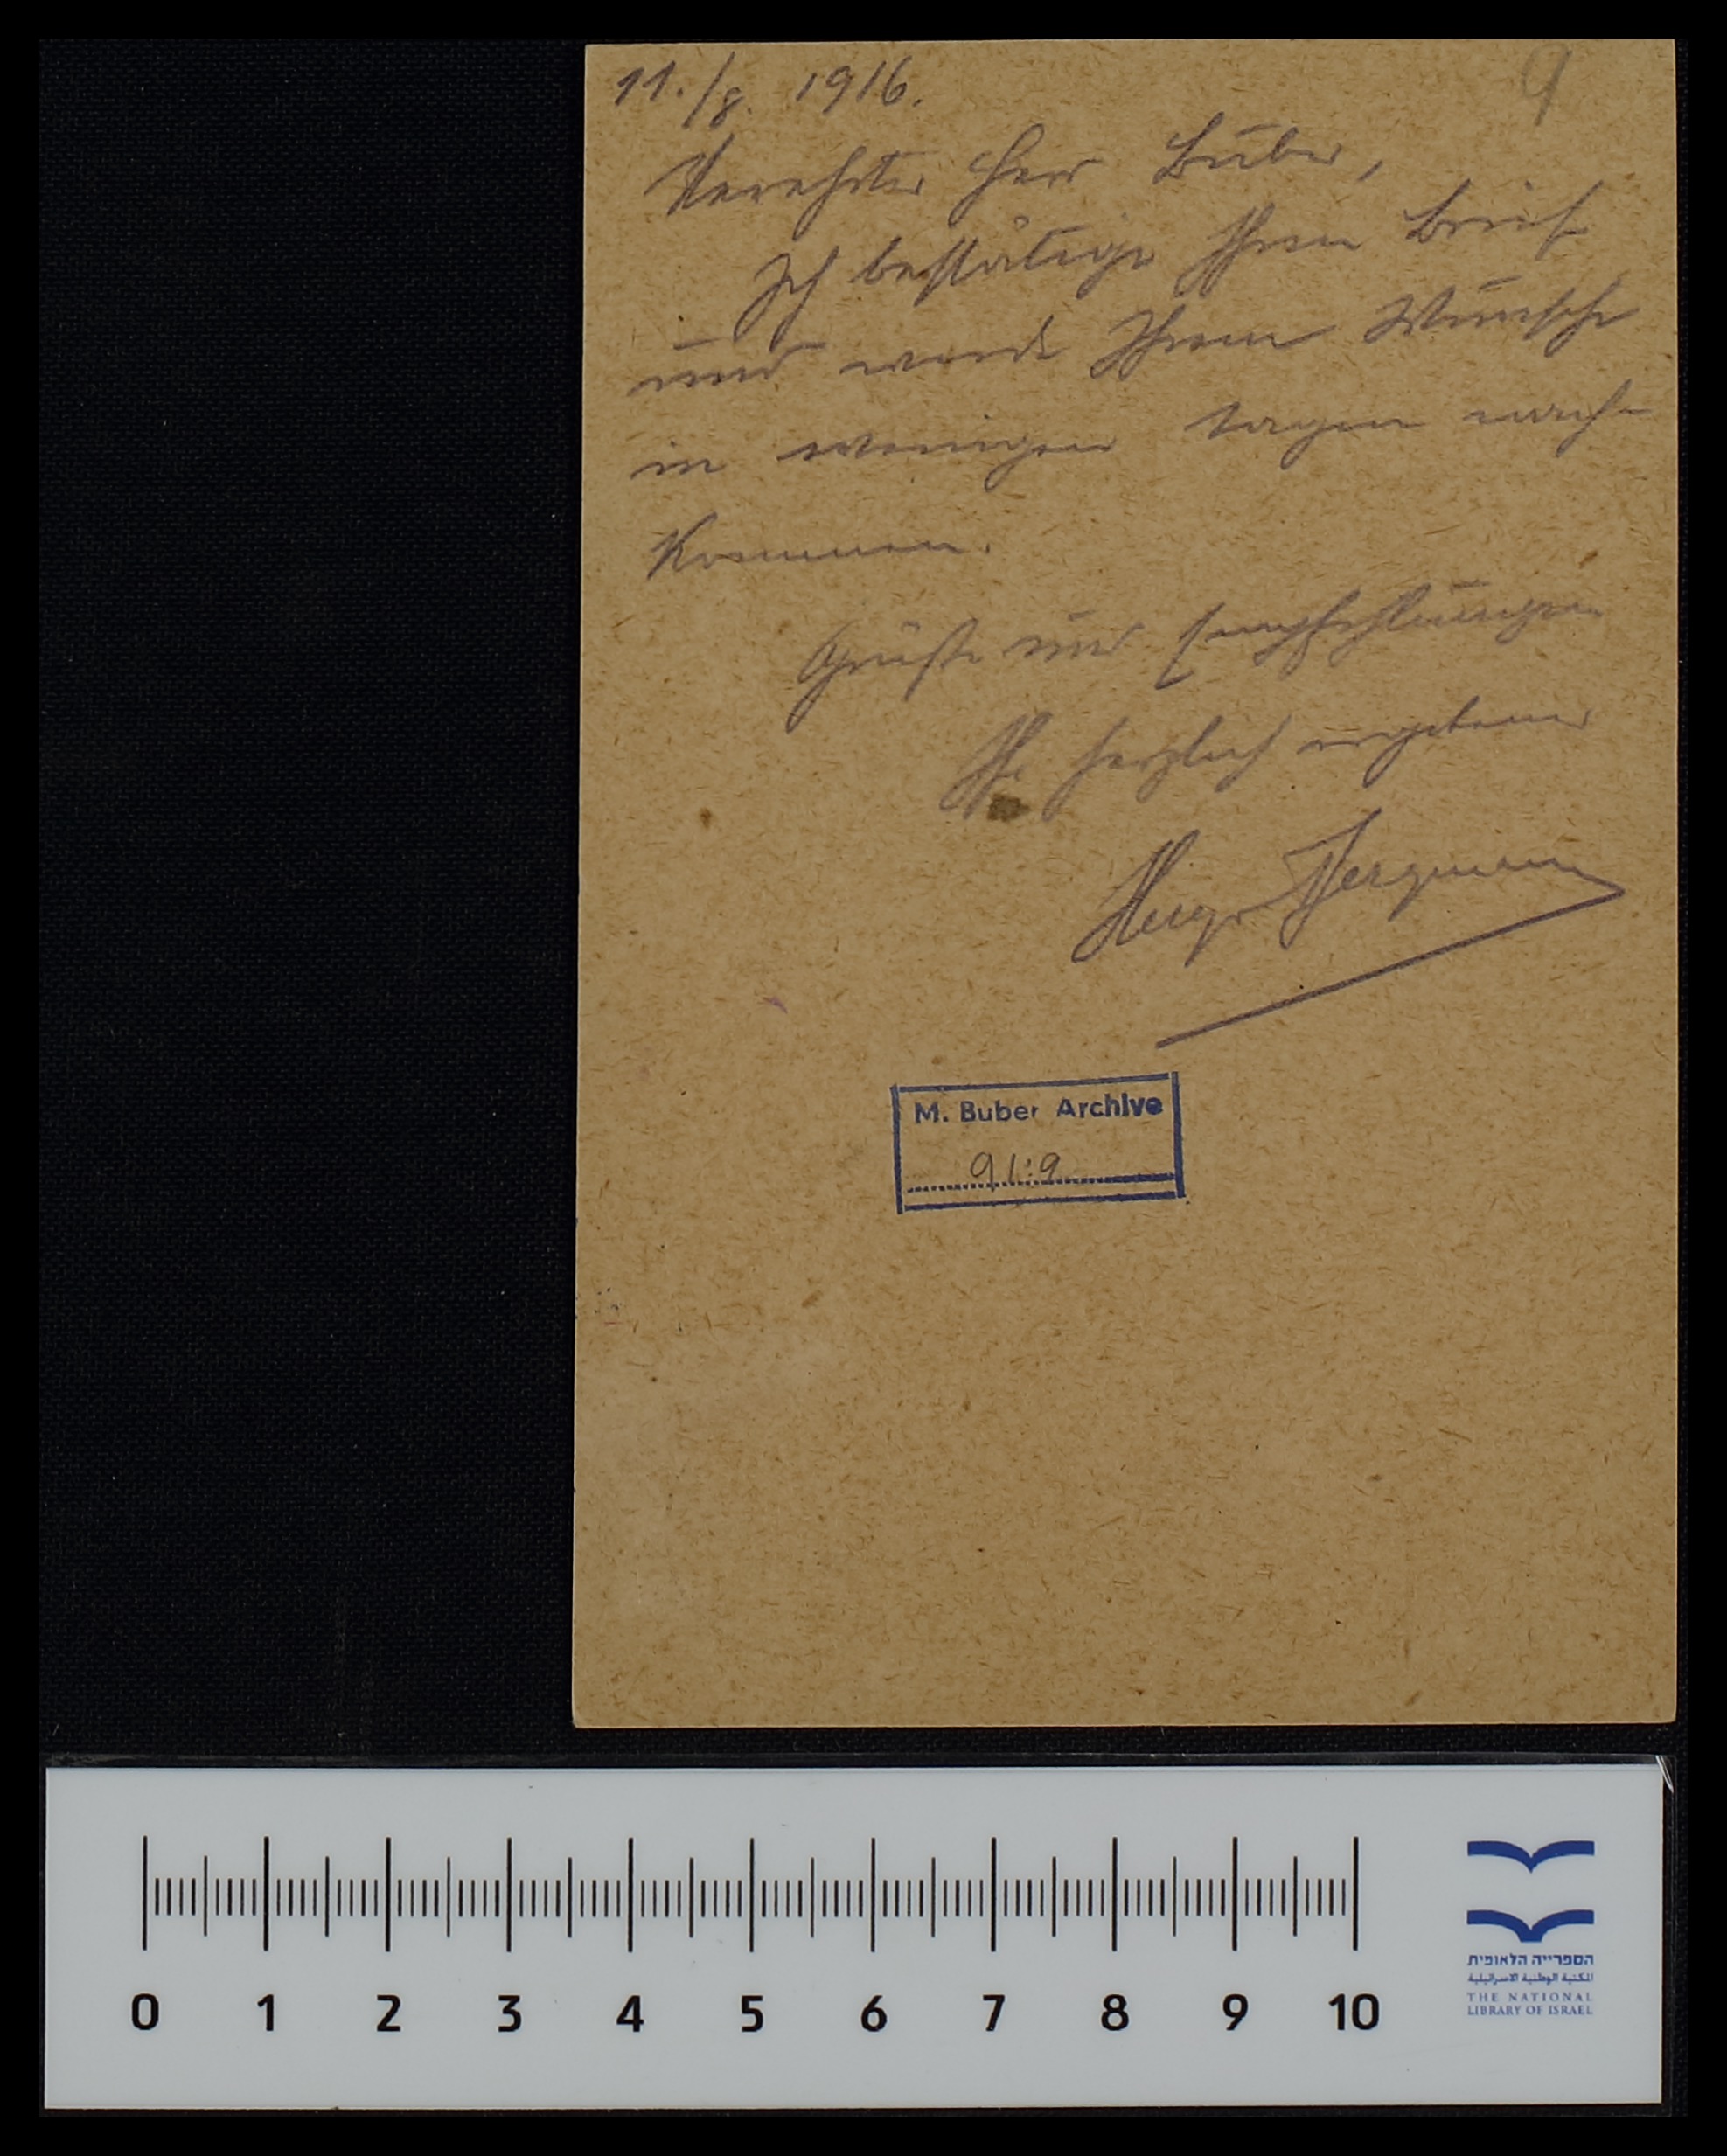 11./8. 1916.
9
Verehrter Herr Buber,
Ich bestätige Ihren Brief
und werde Ihrem Wunsche
in wenigen Tagen nach-
kommen.
Grüße und Empfehlungen
Ihr herzlich ergebener
Hugo Bergmann
M. Buber Archive
91:9
0 1 2 3 4 5 6 7 8 9 10
הספרייה הלאומית
المكتبة الوطنية الاسرائيلية
THE NATIONAL
LIBRARY OF ISRAEL